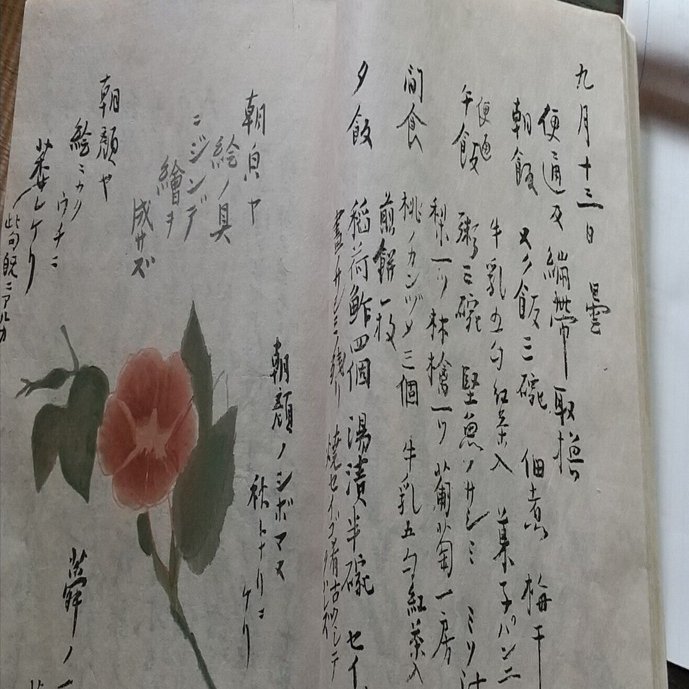 九月十三日 曇
便通及繃帯取換
朝飯 ヌク飯三碗 佃煮 梅干
牛乳五勺紅茶入 菓子パン二
便通
午飯 粥三碗 堅魚ノサシミ ミソ汁
梨一ツ 林檎一ツ 葡萄一房
間食 桃ノカンヅメ三個 牛乳五勺紅茶入
煎餅一枚
夕飯 稲荷鮓四個 湯漬半碗 セイ
朝顔ノシボマヌ
秋トナリニ
ケリ
朝皃ヤ
絵ノ具
ニジンデ
繪ヲ
成サズ
朝顔ヤ
絵ニカク
ウチニ
萎レケリ
此句既ニアルカ
蕣ノ一